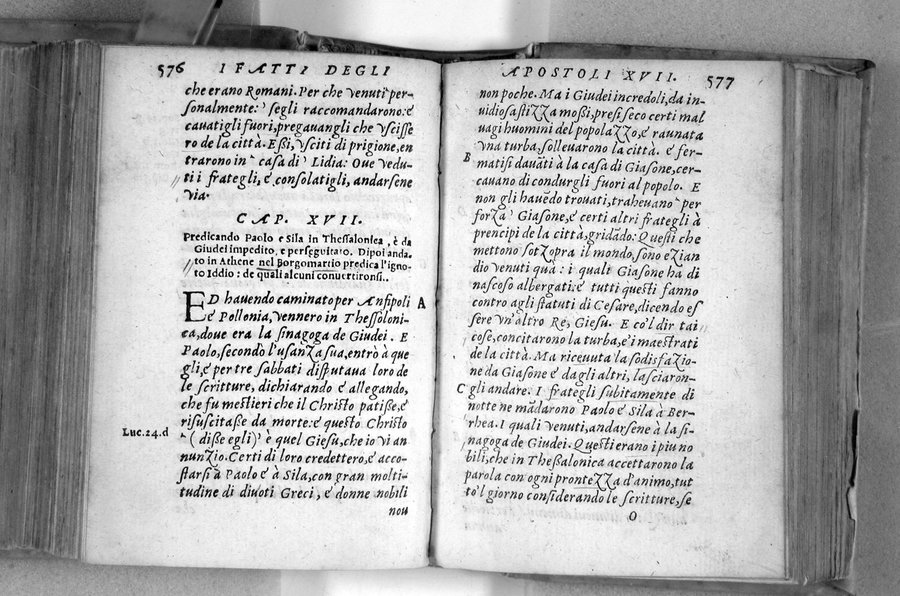 576 I FATTI DEGLI
che erano Romani. Per che venuti per-
sonalmente: segli raccomandarono: é
cauatigli fuori, pregauangli che vscisse
ro de la città. Eßi, vsciti di prigione, en
trarono in casa di Lidia: Oue vedu-
ti i frategli, é consolatigli, andarsene
via.
CAP. XVII.
Predicando Paolo e Sila in Thessalonica, è da
Giudei impedito, e perseguitato. Dipoi anda
to in Athene nel Borgomartio predica l'igno
to Iddio: de quali alcuni conuertironsi.
ED hauendo caminato per Anfipoli A
é Pollonia, vennero in Thessoloni-
ca, doue era la sinagoga de Giudei. E
Paolo, secondo l'usanza sua, entrò à que
gli, é per tre sabbati disputaua loro de
le scritture, dichiarando é allegando,
che fu mestieri che il Christo patiße, é
risuscitaße da morte: é questo Christo
Luc. 24.d (diße egli) è quel Giesu, che io vi an
nunzio. Certi di loro credettero, é acco-
starsi à Paolo é à Sila, con gran molti-
tudine di diuoti Greci, é donne nobili
non
APOSTOLI XVII. 577
non poche. Ma i Giudei incredoli, da in-
uidiosa stizza moßi, presi seco certi mal
uagi huomini del popolazzo, é raunata
vna turba, solleuarono la città. é fer-
B matisi dauãti à la casa di Giasone, cer-
cauano di condurgli fuori al popolo. E
non gli hauẽdo trouati, traheuano per
forza Giasone, é certi altri frategli à
prencipi de la città, gridãdo: Questi che
mettono sotzopra il mondo, sono ezian
dio venuti quà: i quali Giasone ha di
nascoso albergati: é tutti questi fanno
contro agli statuti di Cesare, dicendo es
sere vn'altro Re, Giesù. E co'l dir tai
cose, concitarono la turba, é i maestrati
de la città. Ma riceuuta la sodisfazio-
ne da Giasone é dagli altri, lasciaron-
C gli andare. I frategli subitamente di
notte ne mãdarono Paolo é Sila à Ber-
rhea. I quali venuti, andarsene à la si-
nagoga de Giudei. Questi erano i piu no
bili, che in Theßalonica accettarono la
parola con ogni prontezza d'animo, tut
to'l giorno considerando le scritture, se
O